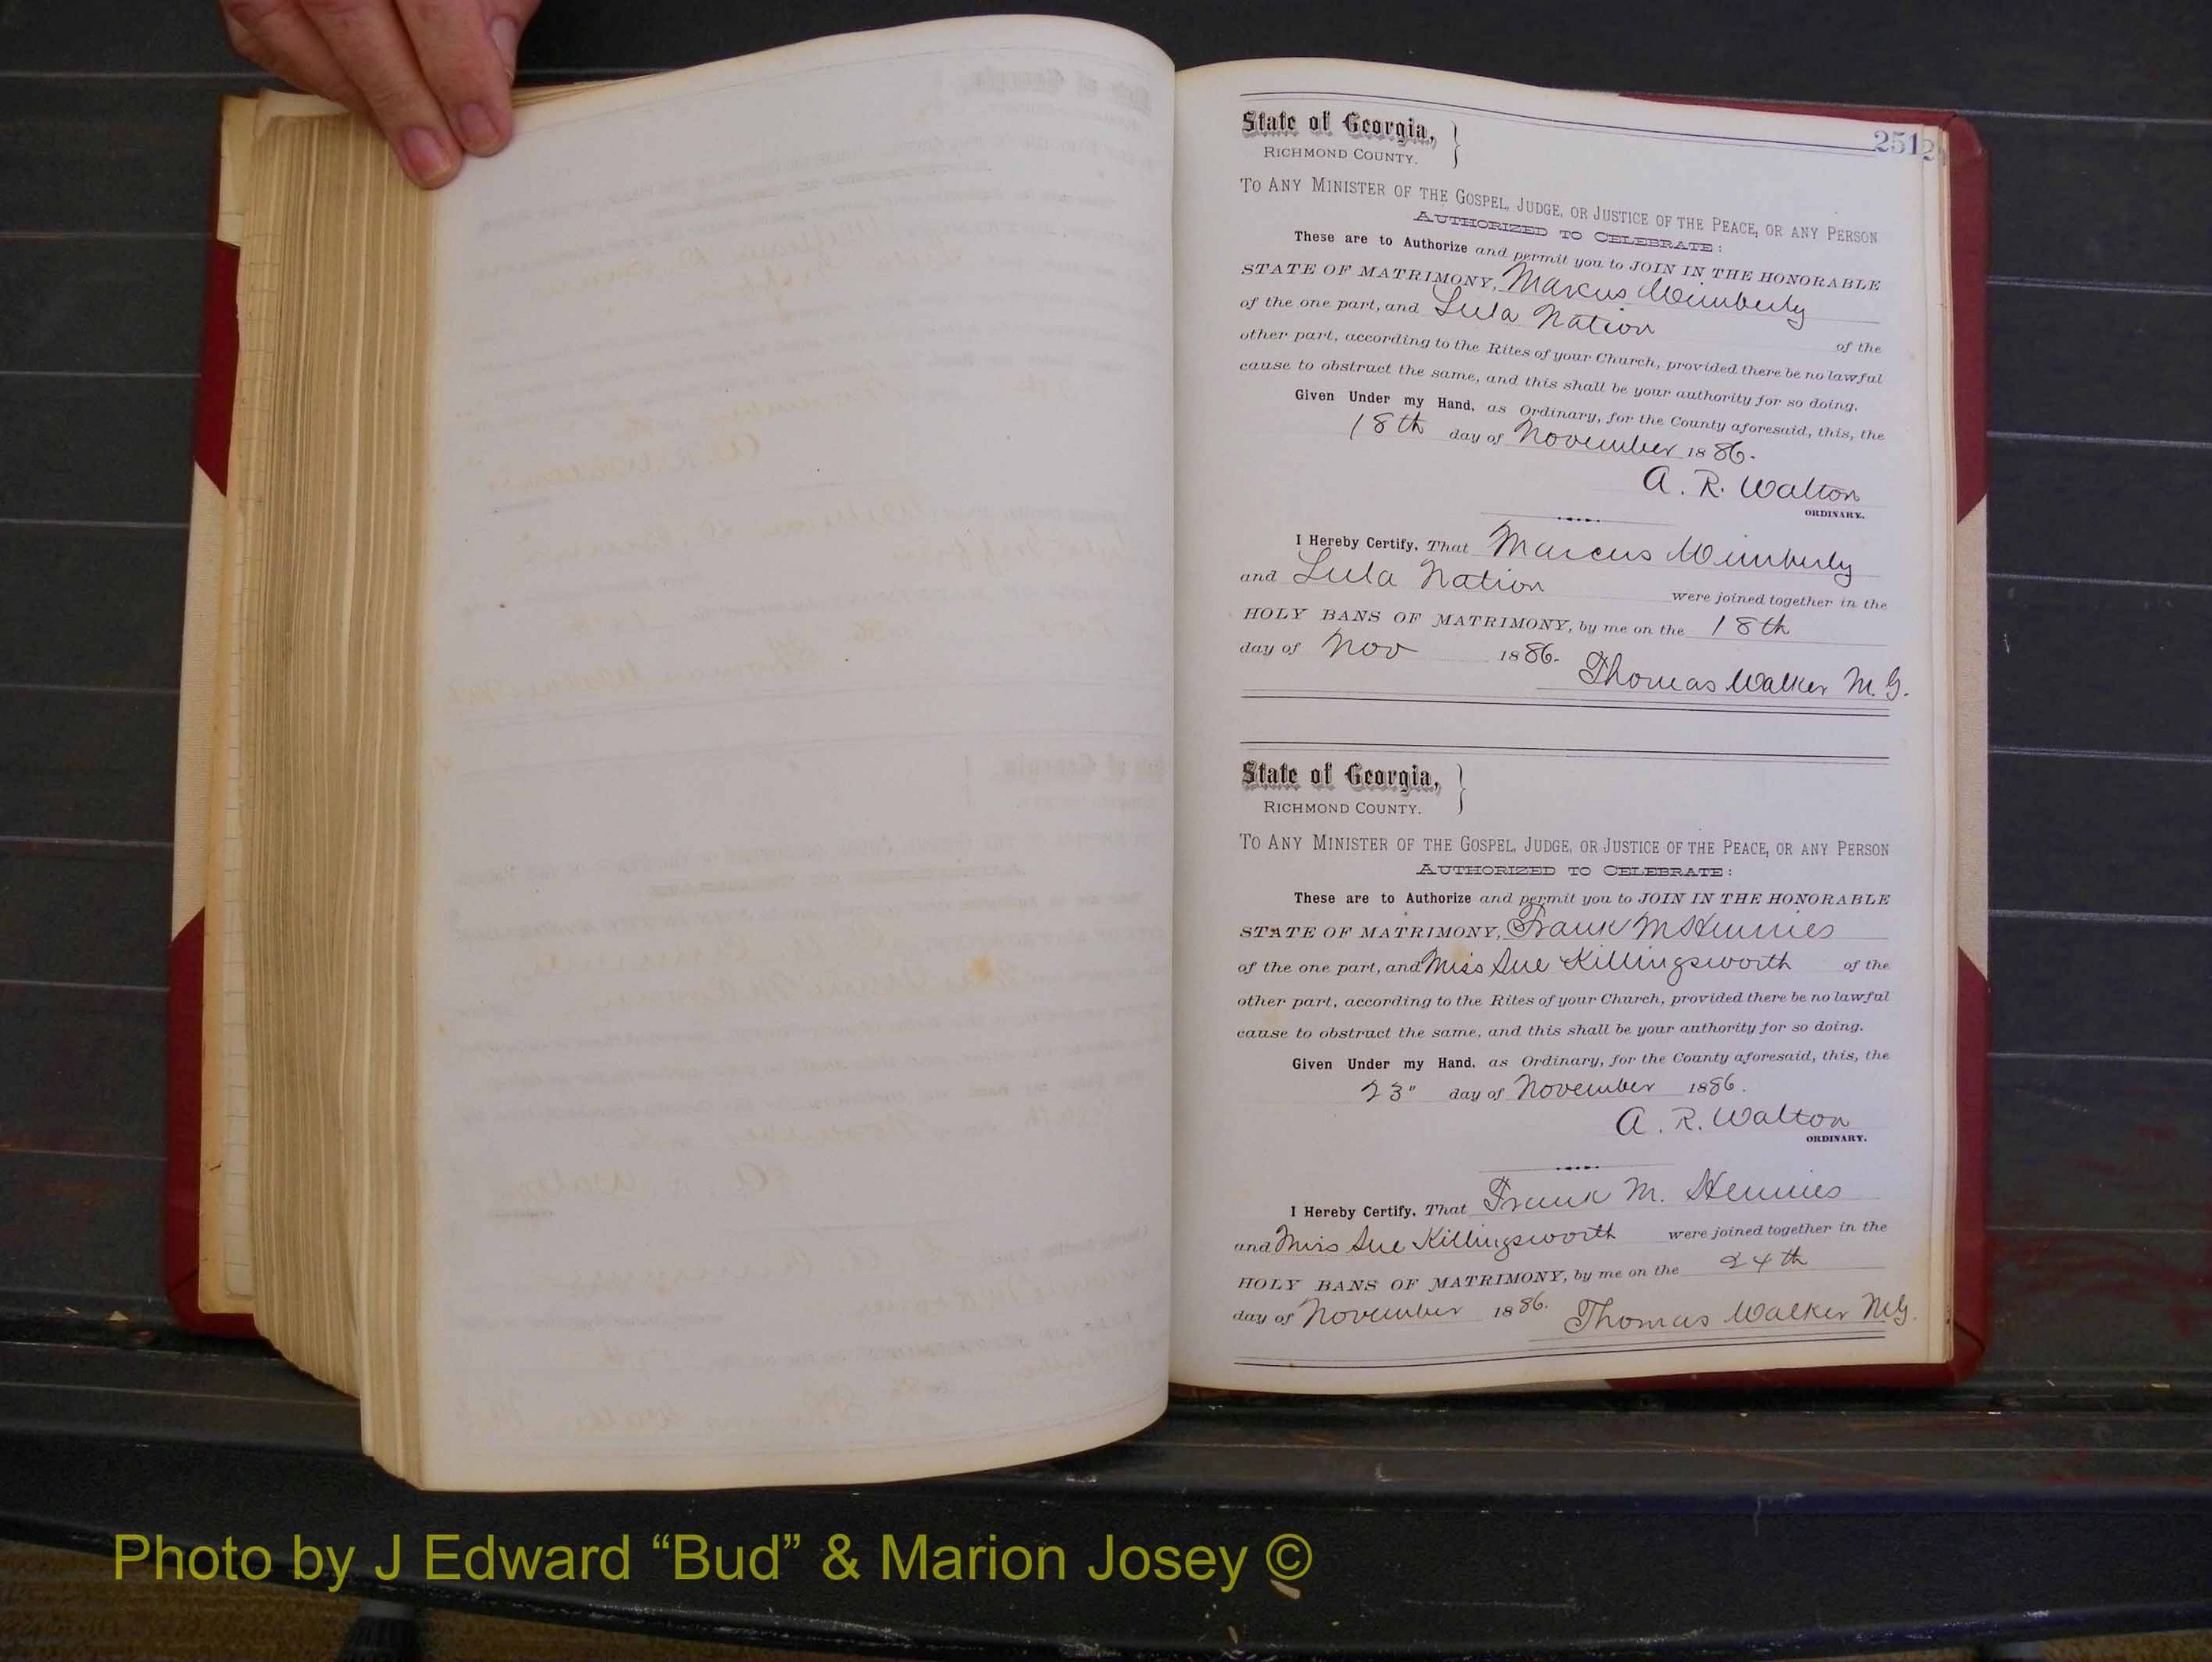 251
State of Georgia,
RICHMOND COUNTY.
TO ANY MINISTER OF THE GOSPEL, JUDGE, OR JUSTICE OF THE PEACE, OR ANY PERSON
AUTHORIZED TO CELEBRATE:
These are to Authorize and permit you to JOIN IN THE HONORABLE
STATE OF MATRIMONY, Marcus Wimberly
of the one part, and Lula Nation of the
other part, according to the Rites of your Church, provided there be no lawful
cause to obstruct the same, and this shall be your authority for so doing.
Given Under my Hand, as Ordinary, for the County aforesaid, this, the
18th day of November 1886.
A. R. Walton
ORDINARY.
I Hereby Certify, That Marcus Wimberly
and Lula Nation were joined together in the
HOLY BANS OF MATRIMONY, by me on the 18th
day of Nov 1886. Thomas Walker M.G.
State of Georgia,
RICHMOND COUNTY.
TO ANY MINISTER OF THE GOSPEL, JUDGE, OR JUSTICE OF THE PEACE, OR ANY PERSON
AUTHORIZED TO CELEBRATE:
These are to Authorize and permit you to JOIN IN THE HONORABLE
STATE OF MATRIMONY, Frank M Hennies
of the one part, and Miss Sue Killingsworth of the
other part, according to the Rites of your Church, provided there be no lawful
cause to obstruct the same, and this shall be your authority for so doing.
Given Under my Hand, as Ordinary, for the County aforesaid, this, the
23" day of November 1886.
A. R. Walton
ORDINARY.
I Hereby Certify, That Frank M. Hennies
and Miss Sue Killingsworth were joined together in the
HOLY BANS OF MATRIMONY, by me on the 24th
day of November 1886. Thomas Walker M.G.
Photo by J Edward “Bud” & Marion Josey ©